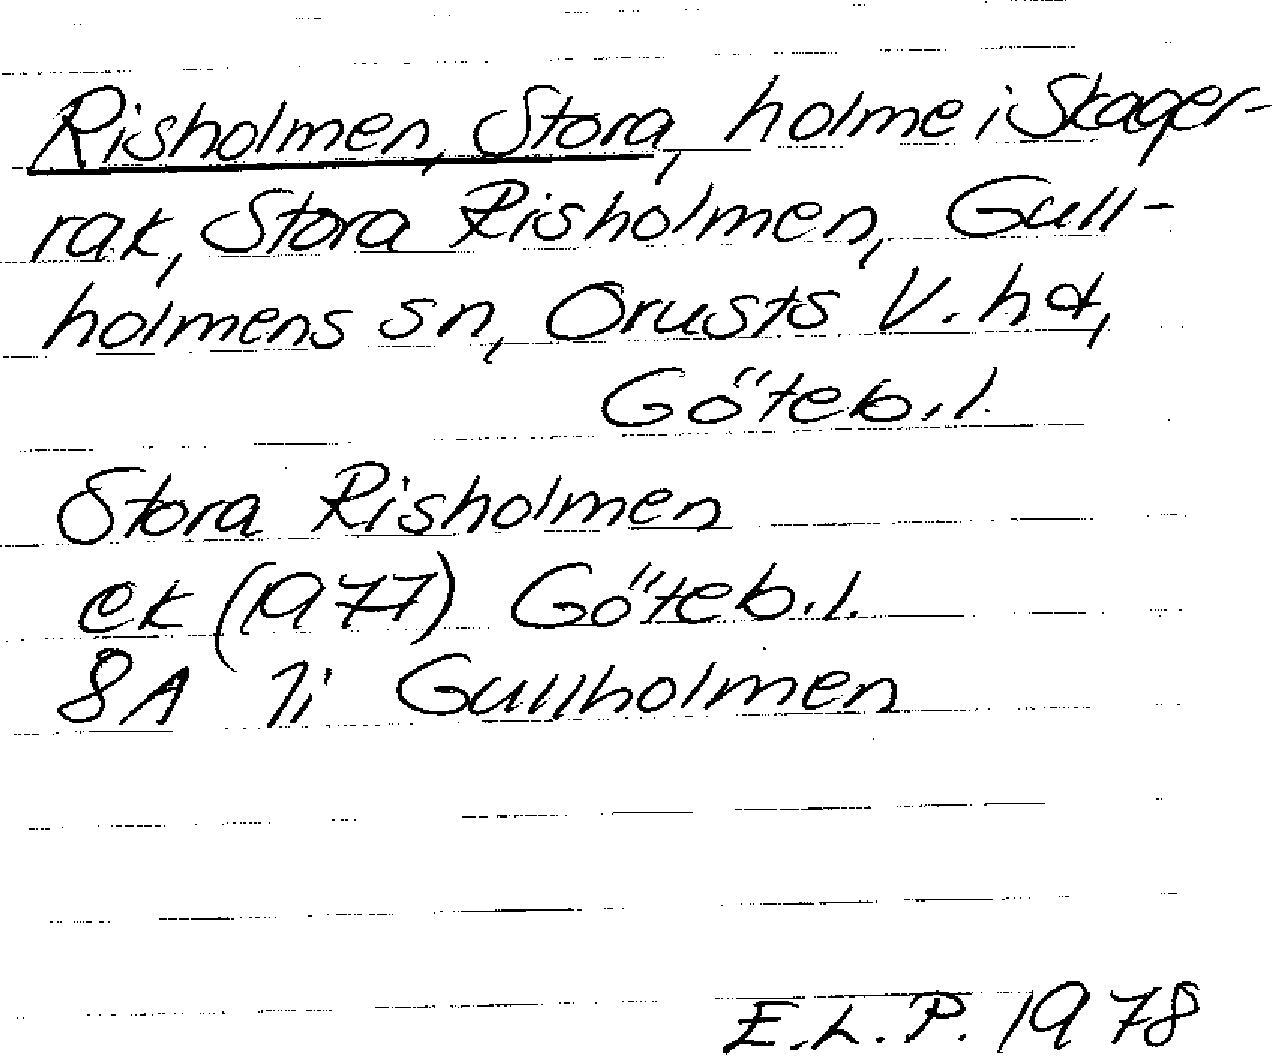 Risholmen, Stora, holme i Skager-
rak, Stora Risholmen, Gull-
holmens sn, Orusts V. hd,
Göteb. l.
Stora Risholmen
ek (1977) Göteb. l.
8A 7i Gullholmen
E.L.P. 1978